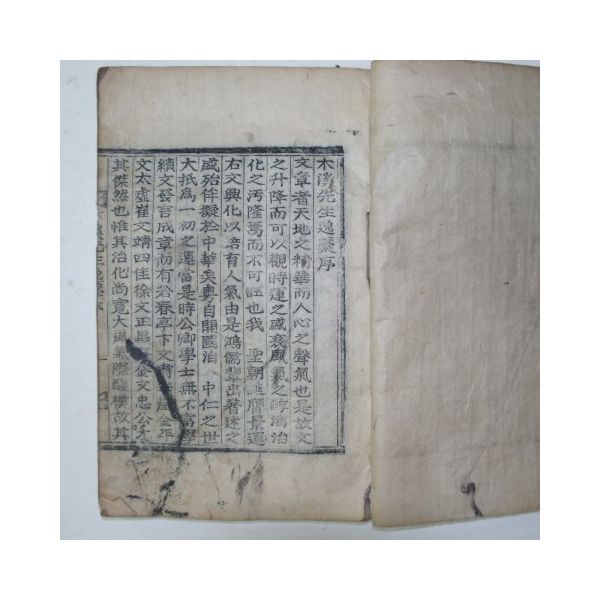 木溪先生逸藁序
文章者天地之精華而人心之聲氣也是故文
之升降而可以觀時運之盛衰風氣之醇漓治
化之汚隆焉而不可誣也我 聖朝誕膺景運
右文興化以培育人氣由是鴻儒輩出著述之
盛殆侔擬於中華矣粤自開國洎 中仁之世
大抵爲一初之運當是時公卿學士無不富學
績文發言成章而有若春亭卞文 金平
文太虛崔文靖四佳徐文正 金文忠公
其傑然也惟其治化尚寬大風氣際醲樸故其